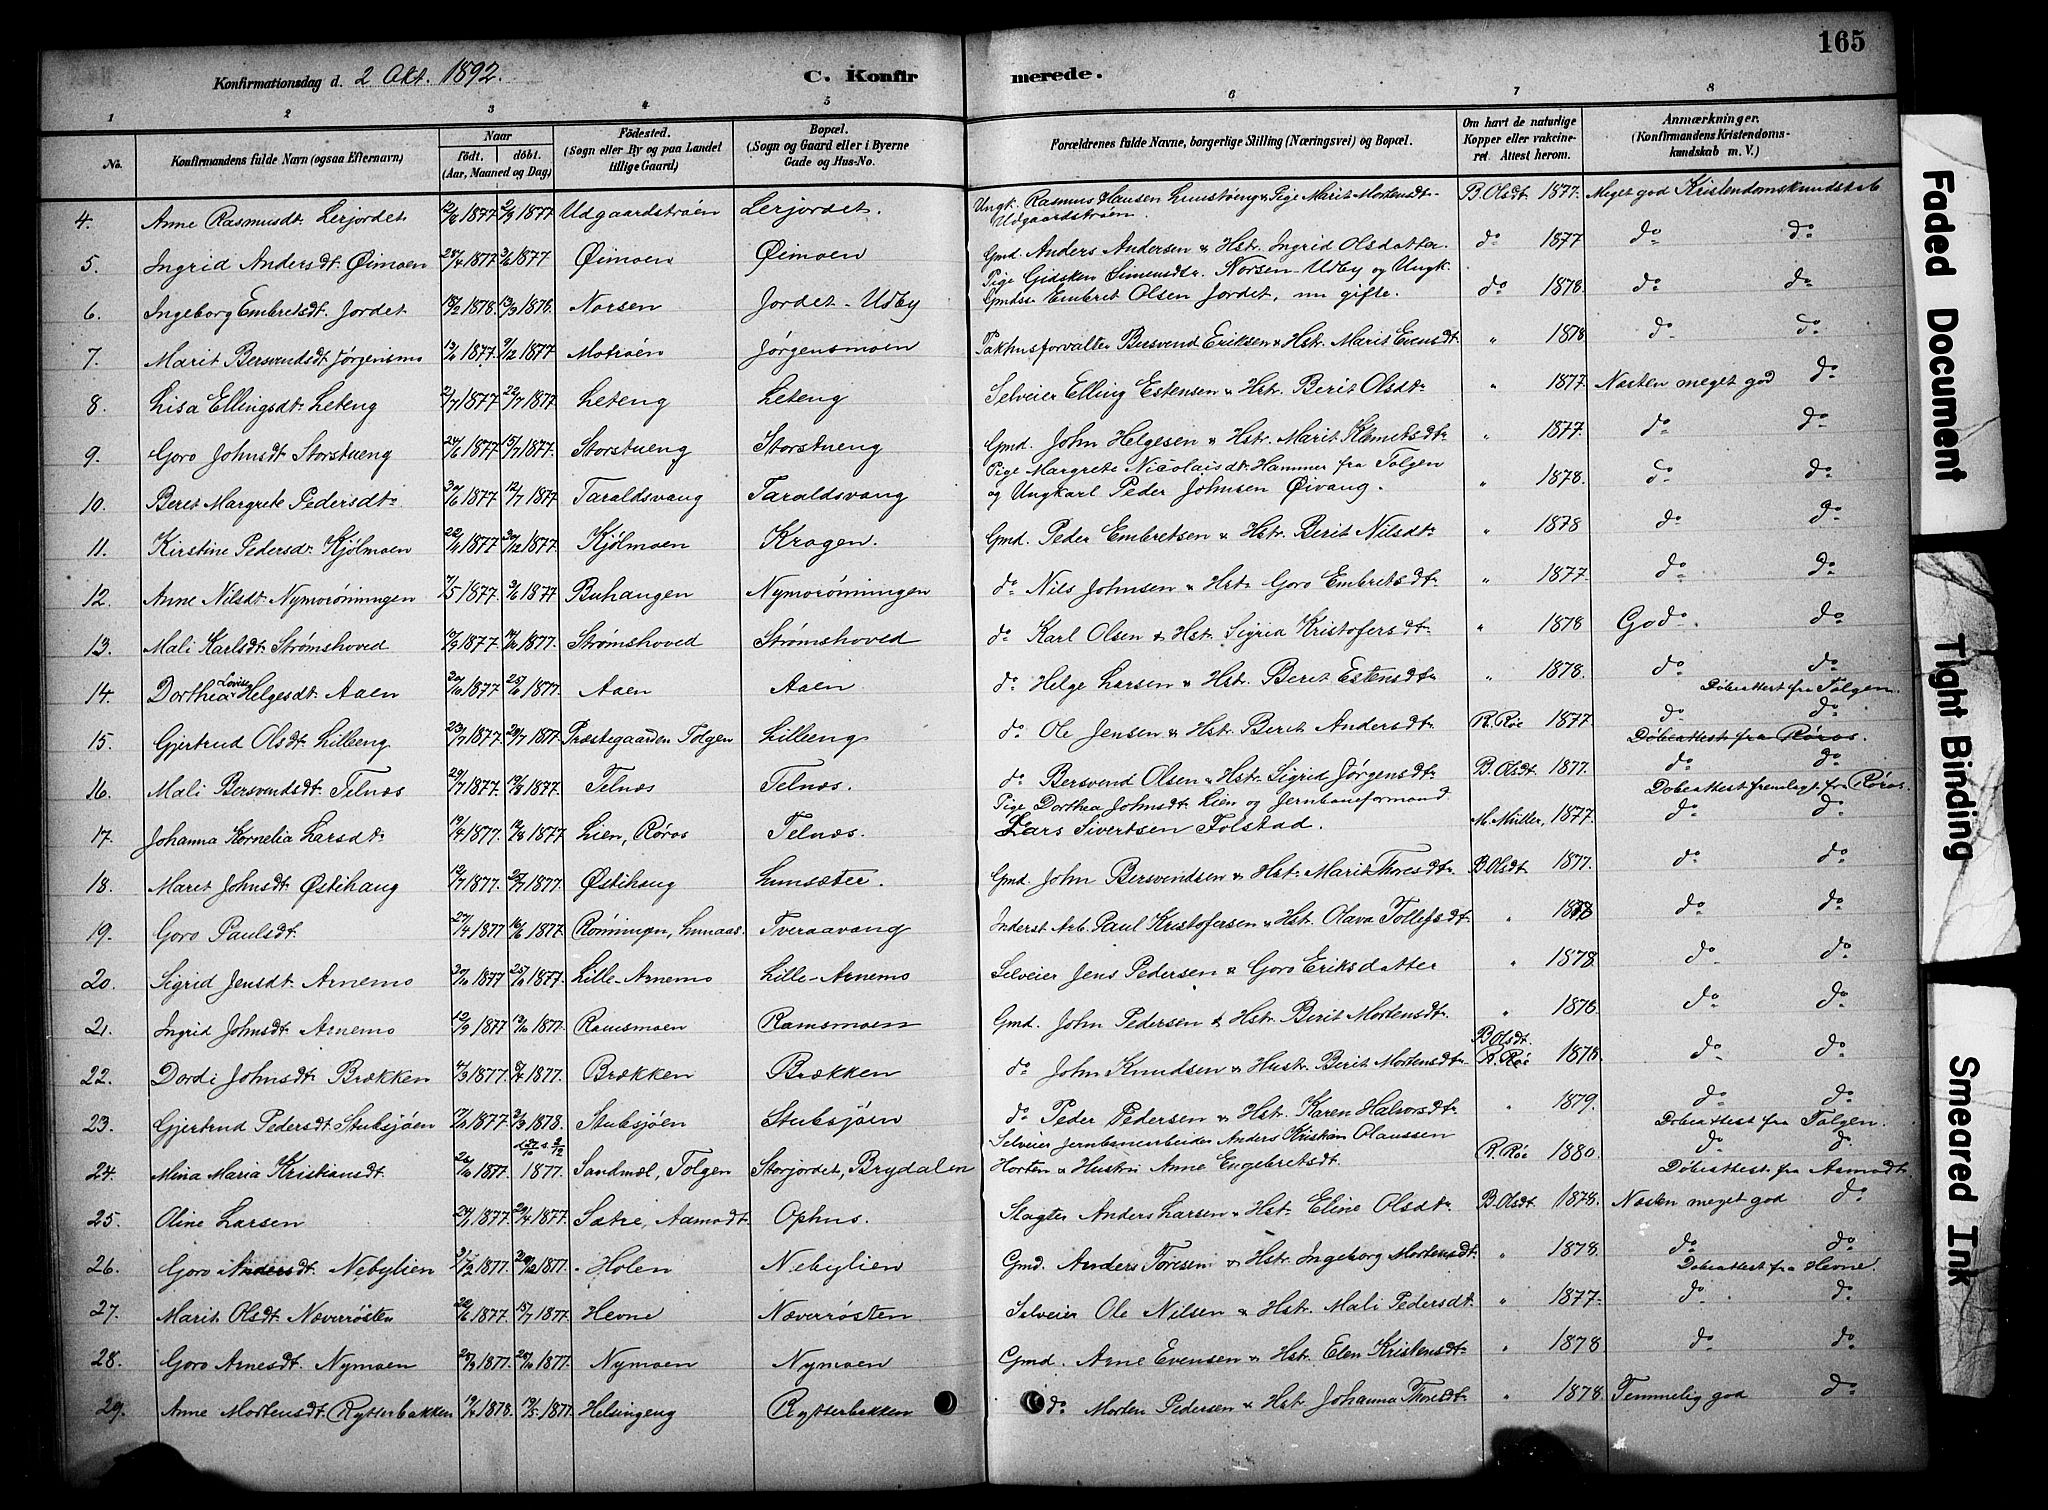 165
Konfirmationsdag d. 2 Okt. 1892.
C. Konfirmerede.
1 2 3 4 5 6 7 8
No. Konfirmandens fulde Navn (ogsaa Efternavn) Naar født. døbt. (Aar, Maaned og Dag) Födested. (Sogn eller By og paa Landet tillige Gaard) Bopæl. (Sogn og Gaard eller i Byerne Gade og Hus-No. Forældrenes fulde Navne, borgerlige Stilling (Næringsvei) og Bopæl. Om havt de naturlige Kopper eller vakcineret. Attest herom. Anmærkninger. (Konfirmandens Kristendomskundskab m. V.)
4. Anne Rasmusdt. Lerjordet 1877 1877 Udgaardstrøen Lerjordet. Ungk. Rasmus Hansen Lunstrøeng & Pige Marit Mortensdt. Udgaardstrøen. B. Olsdt 1877. Meget god Kristendomskundskab
5. Ingrid Andersdt. Øimoen 1877 1877 Øimoen Øimoen Gmd. Anders Andersen & Hstr. Ingrid Olsdatter do 1877 do do
6. Ingeborg Embretsdt. Jordet 1878 1878 Norsen Jordet - Udby Pige Gidsken Simensdtr. Norsen-Udby og Ungk. Gmdss. Embret Olsen Jordet, nu gifte. do 1878. do do
7. Marit Bersvendsdt. Jørgensmo 1877 1877 Motrøen Jørgensmoen Pakhusforvalter Bersvend Eriksen & Hstr. Marit Evensdt. " 1878 do do
8. Lisa Ellingsdt. Leteng 1877 1877 Leteng Leteng Selveier Elling Estensen & Hstr. Berit Olsdtr " 1877. Næsten meget god do
9. Goro Johnsdt. Storstueng 1877 1877. Storstueng Storstueng Gmd. John Helgesen & Hstr. Marit Klemetsdtr " 1877. do do
10. Beret Margrete Pedersdtr. 1877 1877 Taraldsvang Taraldsvang Pige Margrete Nicolaisdt. Hammer fra Tolgen og Ungkarl Peder Johnsen Øivang. " 1878. do do
11. Kirstine Pedersdr. Kjölmoen 1877 1877. Kjölmoen Krogen. Gmd. Peder Embretsen & Hstr. Berit Nilsdtr " 1878 do do
12. Anne Nilsdt. Nymorönningen 7/5 1877. 3/6 1877 Buhaugen Nymorönningen do Nils Johnsen & Hstr. Goro Embretsdtr " 1877. do do
13. Mali Karlsdt. Strømshoved 1877 1877. Strømshoved Strømshoved do Karl Olsen & Hstr. Sigrid Kristofersdtr. " 1878 God. do
14. Dorthea Lovise Helgesdt. Aaen 1877 1877. Aaen Aaen do Helge Larsen & Hstr. Berit Estensdtr " 1878. do do Döbeattest fra Tolgen.
15. Gjertrud Olsdt. Lilleeng 1877 1877 Præstegaarden Tolgen Lilleeng do Ole Jensen & Hstr. Berit Andersdtr R. Røe 1877 do do Döbeattest fra Røros.
16. Mali Bersvendsdt. Telnæs 1877 1877. Telnæs Telnæs. do Bersvend Olsen & Hstr. Sigrid Jørgensdtr B. Olsdt. 1877. do do Döbeattest fremlagt fra Røros.
17. Johanna Kornelia Larsdtr 1877. 1877 Lien, Røros Telnæs. Pige Dorthea Johnsdt. Lien og Jernbaneformand Lars Sivertsen Folstad. M. Müller, 1877. do do
18. Maret Johnsdt. Østihaug 1877. 1877. Østihaug Lunsæter. Gmd. John Bersvendsen & Hstr. Marit Thoresdtr B Olsdt 1877. do do
19. Goro Paulsdt. 1877 1877. Rønningen, Lunaas. Tveraavang Inderst Arb. Paul Kristofersen & Hstr. Olava Tollefsdt. " do do
20. Sigrid Jensdt. Arnemo 1877 1877. Lille-Arnemo Lille-Arnemo Selveier Jens Pedersen & Goro Eriksdatter " 1878. do do
21. Ingrid Johnsdt. Arnemo 1877 1877. Ramsmoen Ramsmoen Gmd. John Pedersen & Hstr. Berit Mortensdtr. " 1878 do do
22. Dordi Johnsdt. Brækken 1877. 1877. Brækken Brækken do John Knudsen & Hustr. Berit Mortensdtr. B Olsdt. R. Røe 1878. do do
23. Gjertrud Pedersdt. Stubsjøen 1877. 1878. Stubsjøen Stubsjøen do Peder Pedersen & Hstr. Karen Halvorsdtr " 1879. do do Döbeattest fra Tolgen.
24. Mina Maria Kristiansdt. 1877. 1877. Sandmæl, Tolgen Storjordet, Brydalen Selveier Jernbanearbeider Anders Kristian Olaussen Horten & Hustru Anne Engebretsdt. R. Røe 1880. do do Döbeattest fra Aamodt
25. Oline Larsen 1877. 1877. Sætre, Aamodt. Ophus. Slagter Anders Larsen & Hstr. Eline Olsdtr B. Olsdt 1878. Næsten meget god do
26. Goro Andersdt. Nebylien 1877. 1877. Holen Nebylien Gmd. Anders Toresen & Hstr. Ingeborg Mortensdt. " 1878. do do Döbeattest fra Hevne.
27. Marit Olsdt. Næverrösten 1877. 1877. Hevne Næverrösten Selveier Ole Nilsen & Hstr. Mali Pedersdt. " 1877. do do
28. Goro Arnesdt. Nymoen 1877. 1877. Nymoen Nymoen Gmd. Arne Evensen & Hstr. Elen Kristensdtr " 1878 do do
29. Anne Mortensdt. Rytterbakken 1878. 1877. Helsingeng Rytterbakken do Morten Pedersen & Hstr. Johanna Thoresdtr " 1878. Temmelig god do
Faded Document
Tight Binding
Smeared Ink